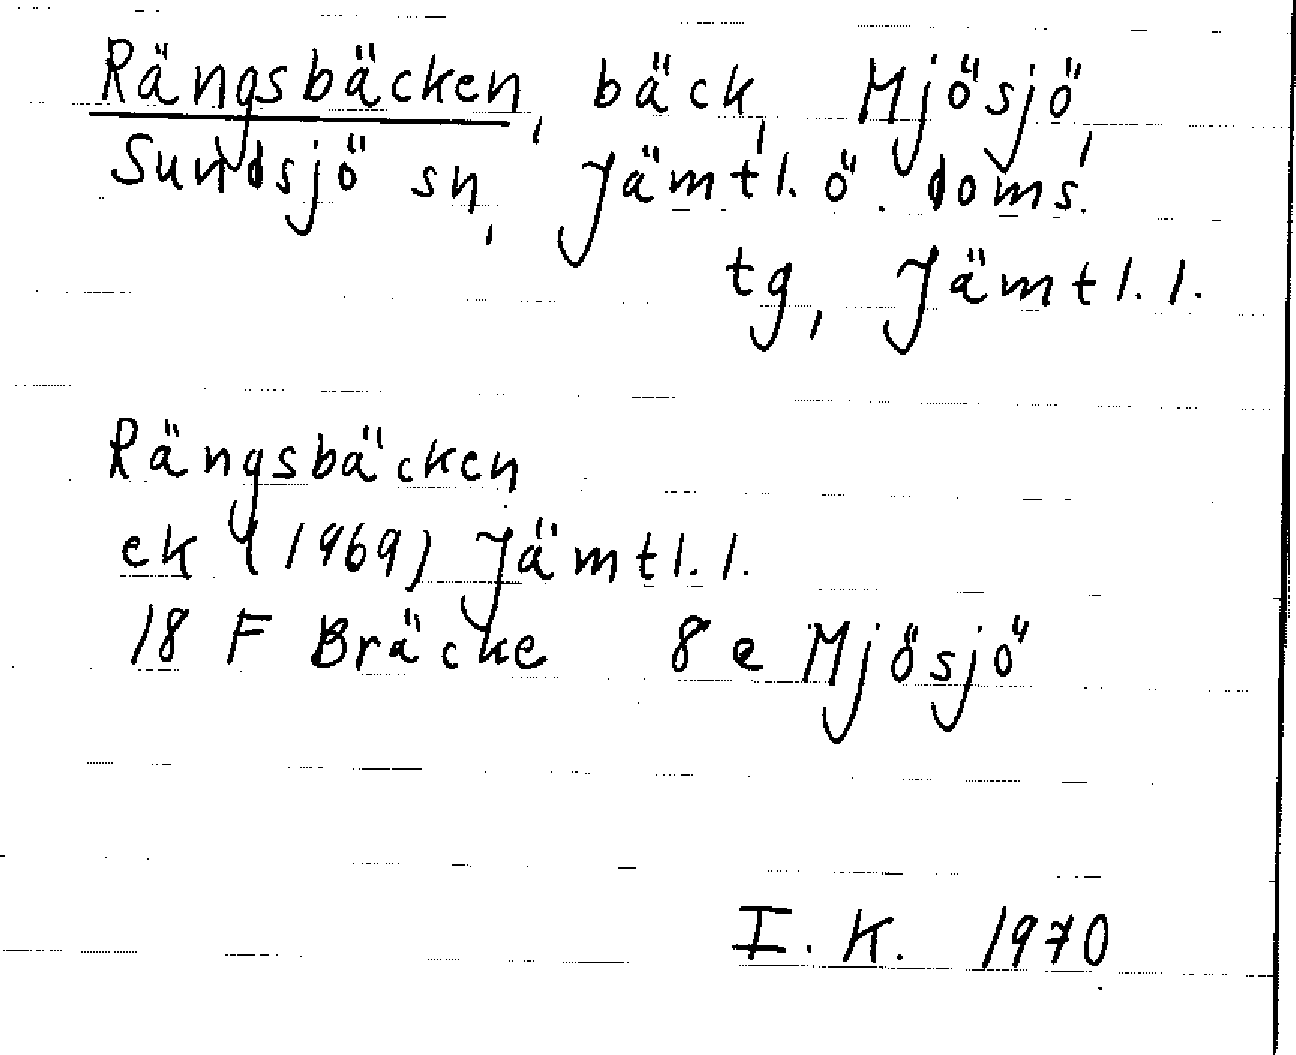 Rängsbäcken, bäck, Mjösjö,
Sundsjö sn, Jämtl. ö. doms.
tg, Jämtl. l.
Rängsbäcken
ek (1969) Jämtl. l.
18 F Bräcke 8 e Mjösjö
I. K. 1970